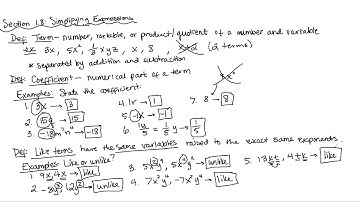 Section 1.8: Simplifying Expressions
Def: Term - number, variable, or product/quotient of a number and variable
3x, 5x², 1/3 xyz, x, 8, x+2 (2 terms)
* separated by addition and subtraction
Def: Coefficient - numerical part of a term
Examples: State the coefficient.
1. 3x → 3
2. 15y → 15
3. -18m n → -18
4. 1r → 1
5. -1x → -1
6. 1y/5 = 1/5 y → 1/5
7. 8 → 8
Def: Like terms have the same variables raised to the exact same exponents.
Examples: Like or unlike?
1. 9x, 4x → like
2. -8y, 12y² → unlike
3. 5x y, 5x y → unlike
4. 7x y, -7x y → like
5. 13 , 4 → like